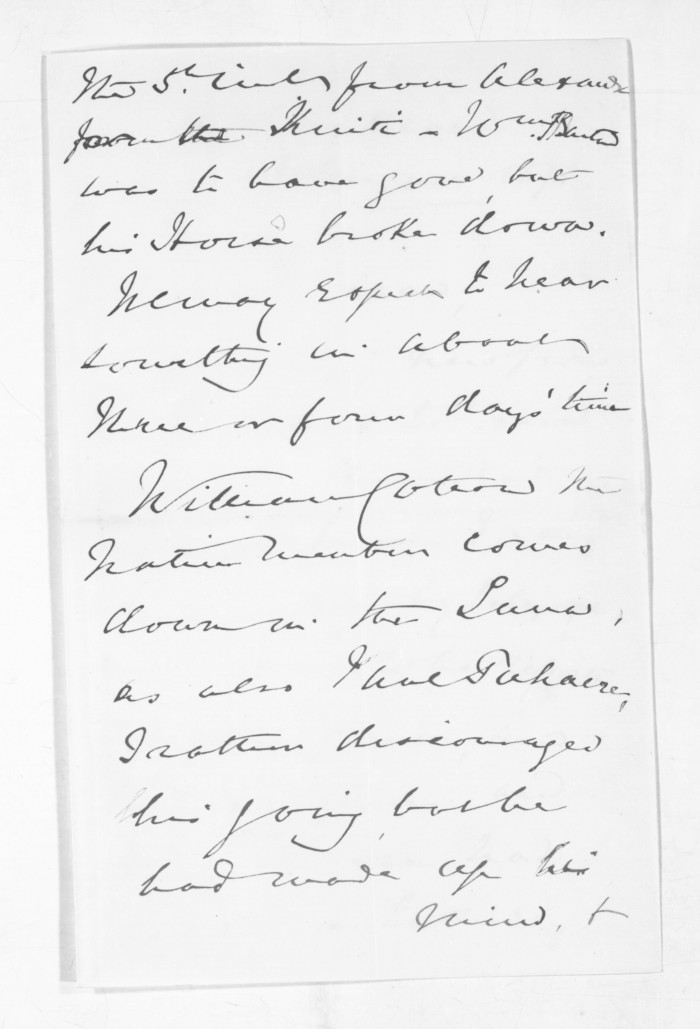 the 5th Inst from Alexandr
from the Kuiti - Wm
was to have gone, but
his Horse broke down.
We may expect to hear
something in about
three or four days' time
William Coleow the
Native member comes
down in the Luna,
as also Paul Tuhaere,
I rather discouraged
his going, but he
had made up his
mind, +